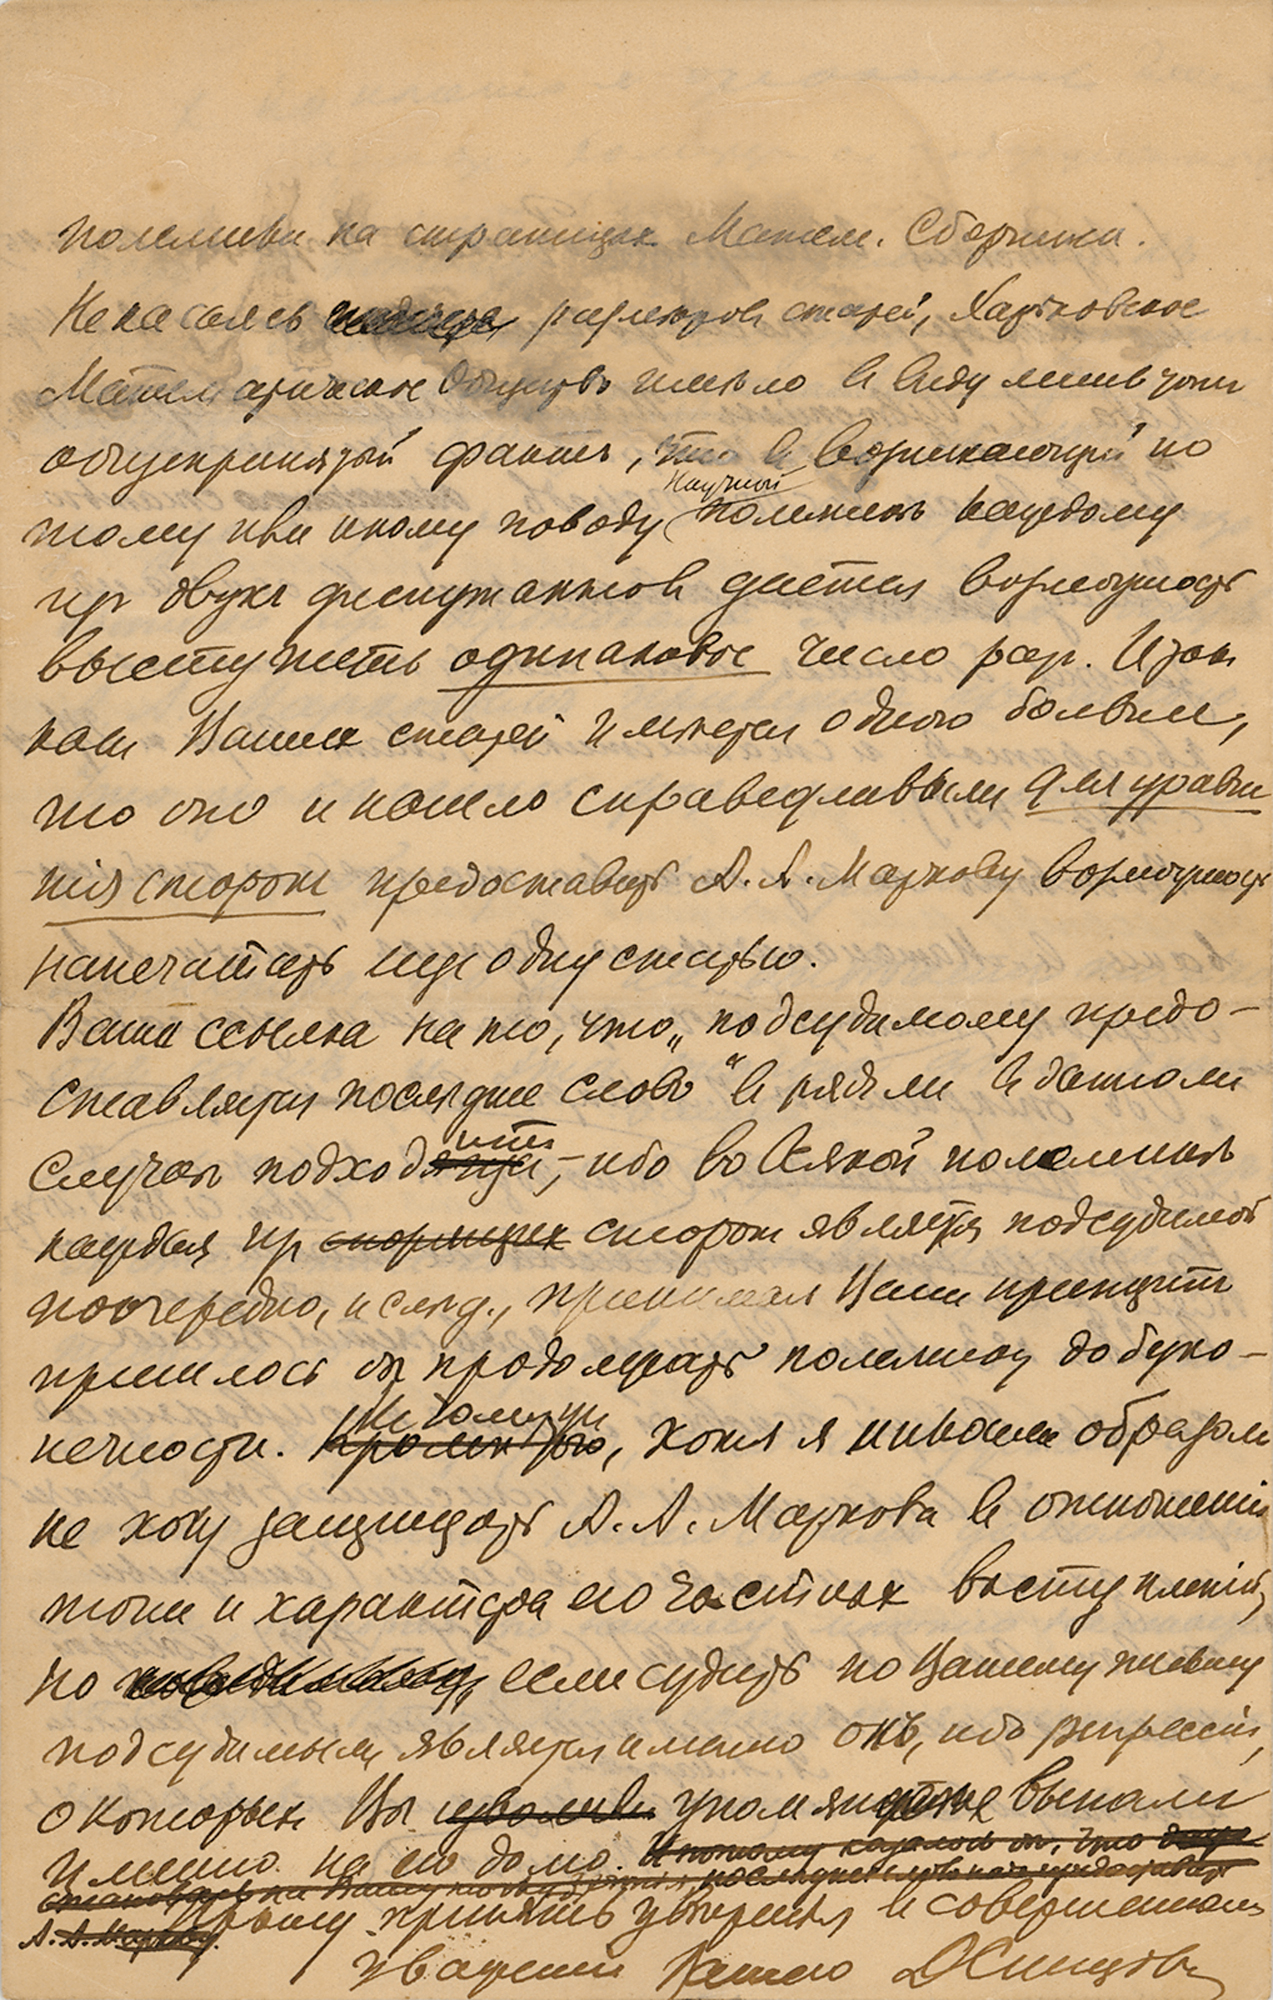 полемики на страницах Матем. Сборника.
Не касаясь разбора статей, Харьковское
Математическое Общество имело в виду лишь
общепринятый факт, что в возникающей по
тому или иному поводу научной полемике каждому
из двух диспутантов дается возможность
выступить одинаковое число раз. И так
как Ваших статей имеется одною больше,
то оно и нашло справедливым для уравне
нія сторон предоставить А. А. Маркову возможность
напечатать еще одну статью.
Ваша ссылка на то, что „подсудимому предо-
ставляется последнее слово“ врядъ ли в данном
случае подходитъ, – ибо во всякой полемике
каждая из спорящих сторон является подсудимой
поочередно, и след., принимая Ваш принцип
пришлось бы продолжать полемику до беско-
нечности. , хотя я никоим образом
не хочу защищать А. А. Маркова в отношеніи
тона и характера его частных выступленій,
но если судить по Вашему письму
подсудимым является именно онъ, ибо репрессіи,
о которых Вы изволили упомянуть выпали
именно на его долю. И потому казалось бы, что
последнее слово предоставить
А. А. Маркову. Прошу принять уверения в совершенном
уважении Вашего ДСинцовъ